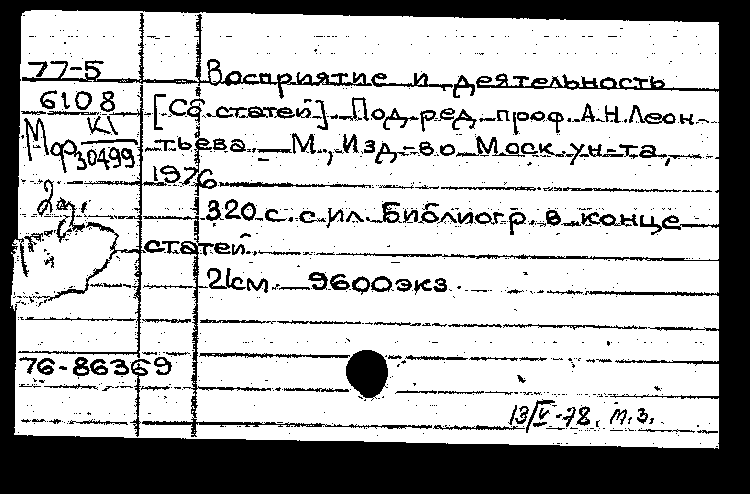 77-5 Восприятие и деятельность
6108 [Сб. статей]. Под. ред. проф. А.Н. Леон-
Мф К1/30499 тьева. – М., Изд.-во Моск. ун-та,
1976
320 с. с ил. Библиогр. в конце
статей.
21см. 9600экз.
76-86369
13/V-78. М.З.